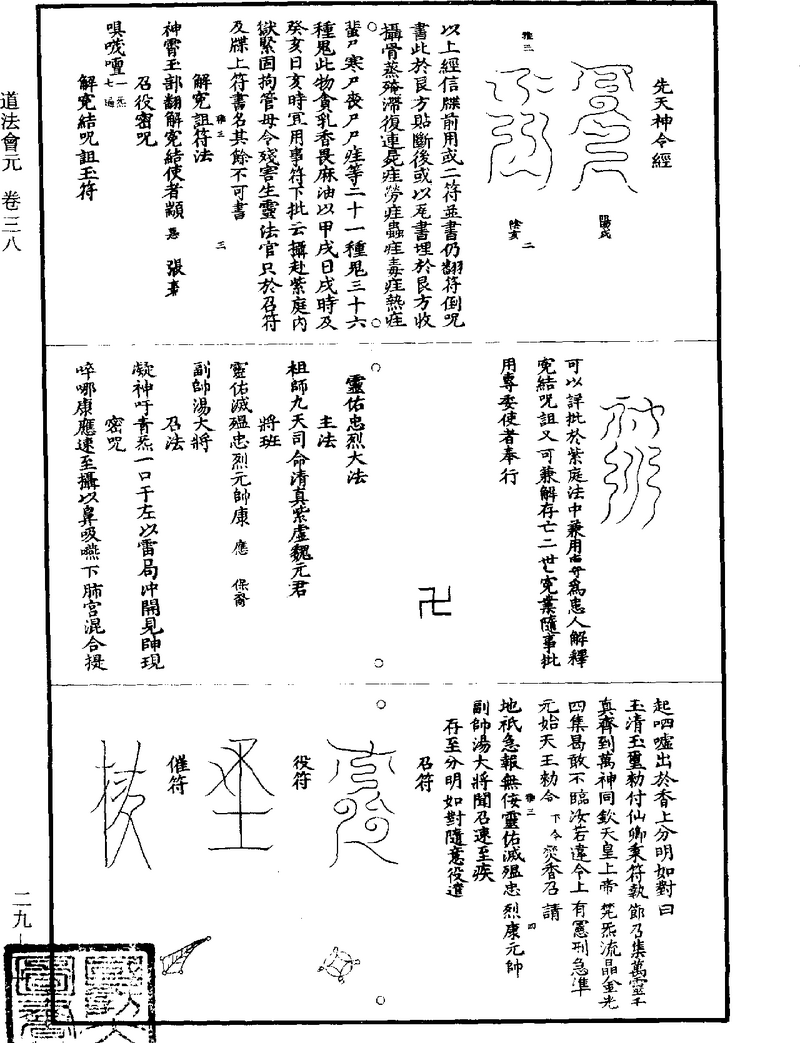 道法會元 卷三八
先天神令經
陽戌
陰亥 二
以上經信牒前用或二符並書仍翻符倒呪
書此於艮方貼斷後或以瓦書埋於艮方收
攝骨蒸殗滯復連屍疰勞疰蟲疰毒疰熱疰
蜚尸寒尸喪尸尸疰等二十一種鬼三十六
種鬼此物貪乳香畏麻油以甲戌日戌時及
癸亥日亥時冝用事符下批云攝赴紫庭內
獄緊固拘管毋令殘害生靈法官只於召符
及牒上符書名其餘不可書
解寃詛符法
三
神霄玉部翻解寃結使者顓 張
召役密呪
唄㗼㘊一炁七遍
解寃結呪詛玉符
可以詳批於紫庭法中兼用為患人解釋
寃結呪詛又可兼解存亡二世寃業隨事批
用專委使者奉行
卍
靈佑忠烈大法
主法
祖師九天司命清真紫虛魏元君
將班
靈佑滅瘟忠烈元帥康 應 保裔
副帥湯大將
召法
凝神吁青炁一口于左以雷局冲開見帥現
密呪
啐哪康應速至攝以鼻吸嚥下肺宮混合提
起呬噓出於香上分明如對曰
玉清玉璽勑付仙卿秉符執節召集萬靈千
真齊到萬神同欽天皇上帝梵炁流晶金光
四集曷敢不臨汝若違令上有憲刑急準
元始天王勑令 下令 焚香召請
地祇急報無佞靈佑滅瘟忠烈康元帥
四
副帥湯大將聞召速至疾
存至分明如對隨意役遣
召符
役符
催符
二九